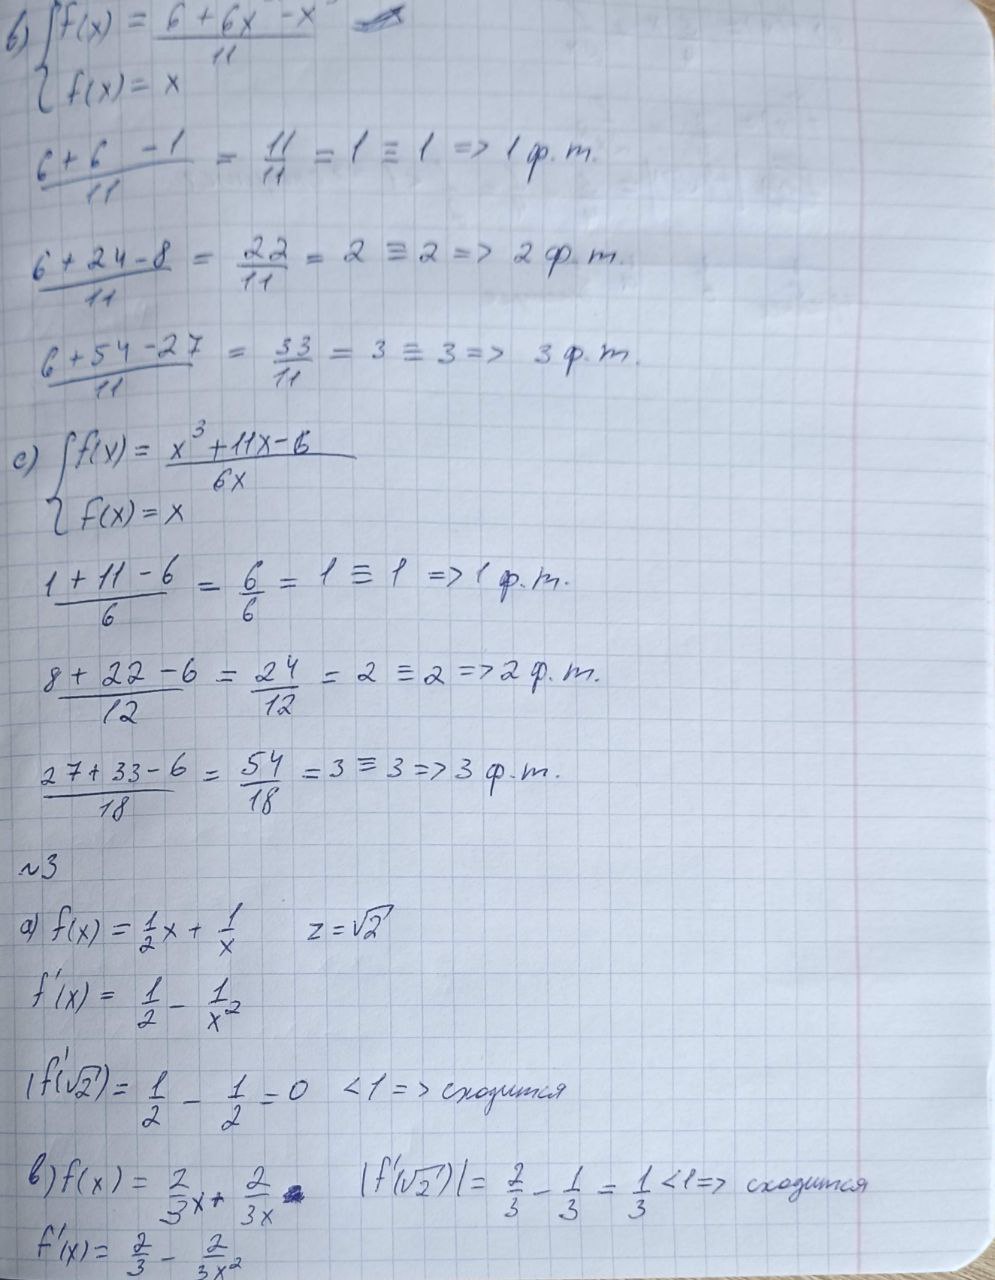 в) { f(x) = (6 + 6x² - x³)/11
f(x) = x
(6 + 6 - 1)/11 = 11/11 = 1 ≡ 1 => 1 ф.т.
(6 + 24 - 8)/11 = 22/11 = 2 ≡ 2 => 2 ф.т.
(6 + 54 - 27)/11 = 33/11 = 3 ≡ 3 => 3 ф.т.
с) { f(x) = (x³ + 11x - 6)/6x
f(x) = x
(1 + 11 - 6)/6 = 6/6 = 1 ≡ 1 => 1 ф.т.
(8 + 22 - 6)/12 = 24/12 = 2 ≡ 2 => 2 ф.т.
(27 + 33 - 6)/18 = 54/18 = 3 ≡ 3 => 3 ф.т.
№3
а) f(x) = 1/2 x + 1/x z = √2
f'(x) = 1/2 - 1/x²
|f'(√2) = 1/2 - 1/2 = 0 < 1 => сходится
в) f(x) = 2/3 x + 2/3x |f'(√2)| = 2/3 - 1/3 = 1/3 < 1 => сходится
f'(x) = 2/3 - 2/3x²